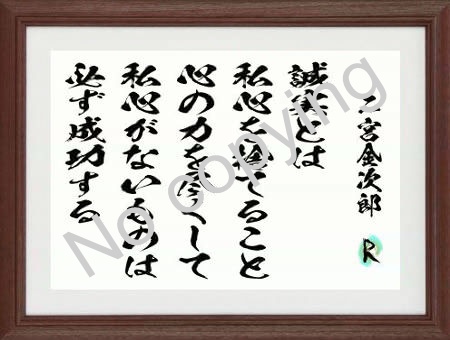 二宮金次郎
R
誠実とは
私心を捨てること
心の力を尽くして
私心がないものは
必ず成功する
No copying